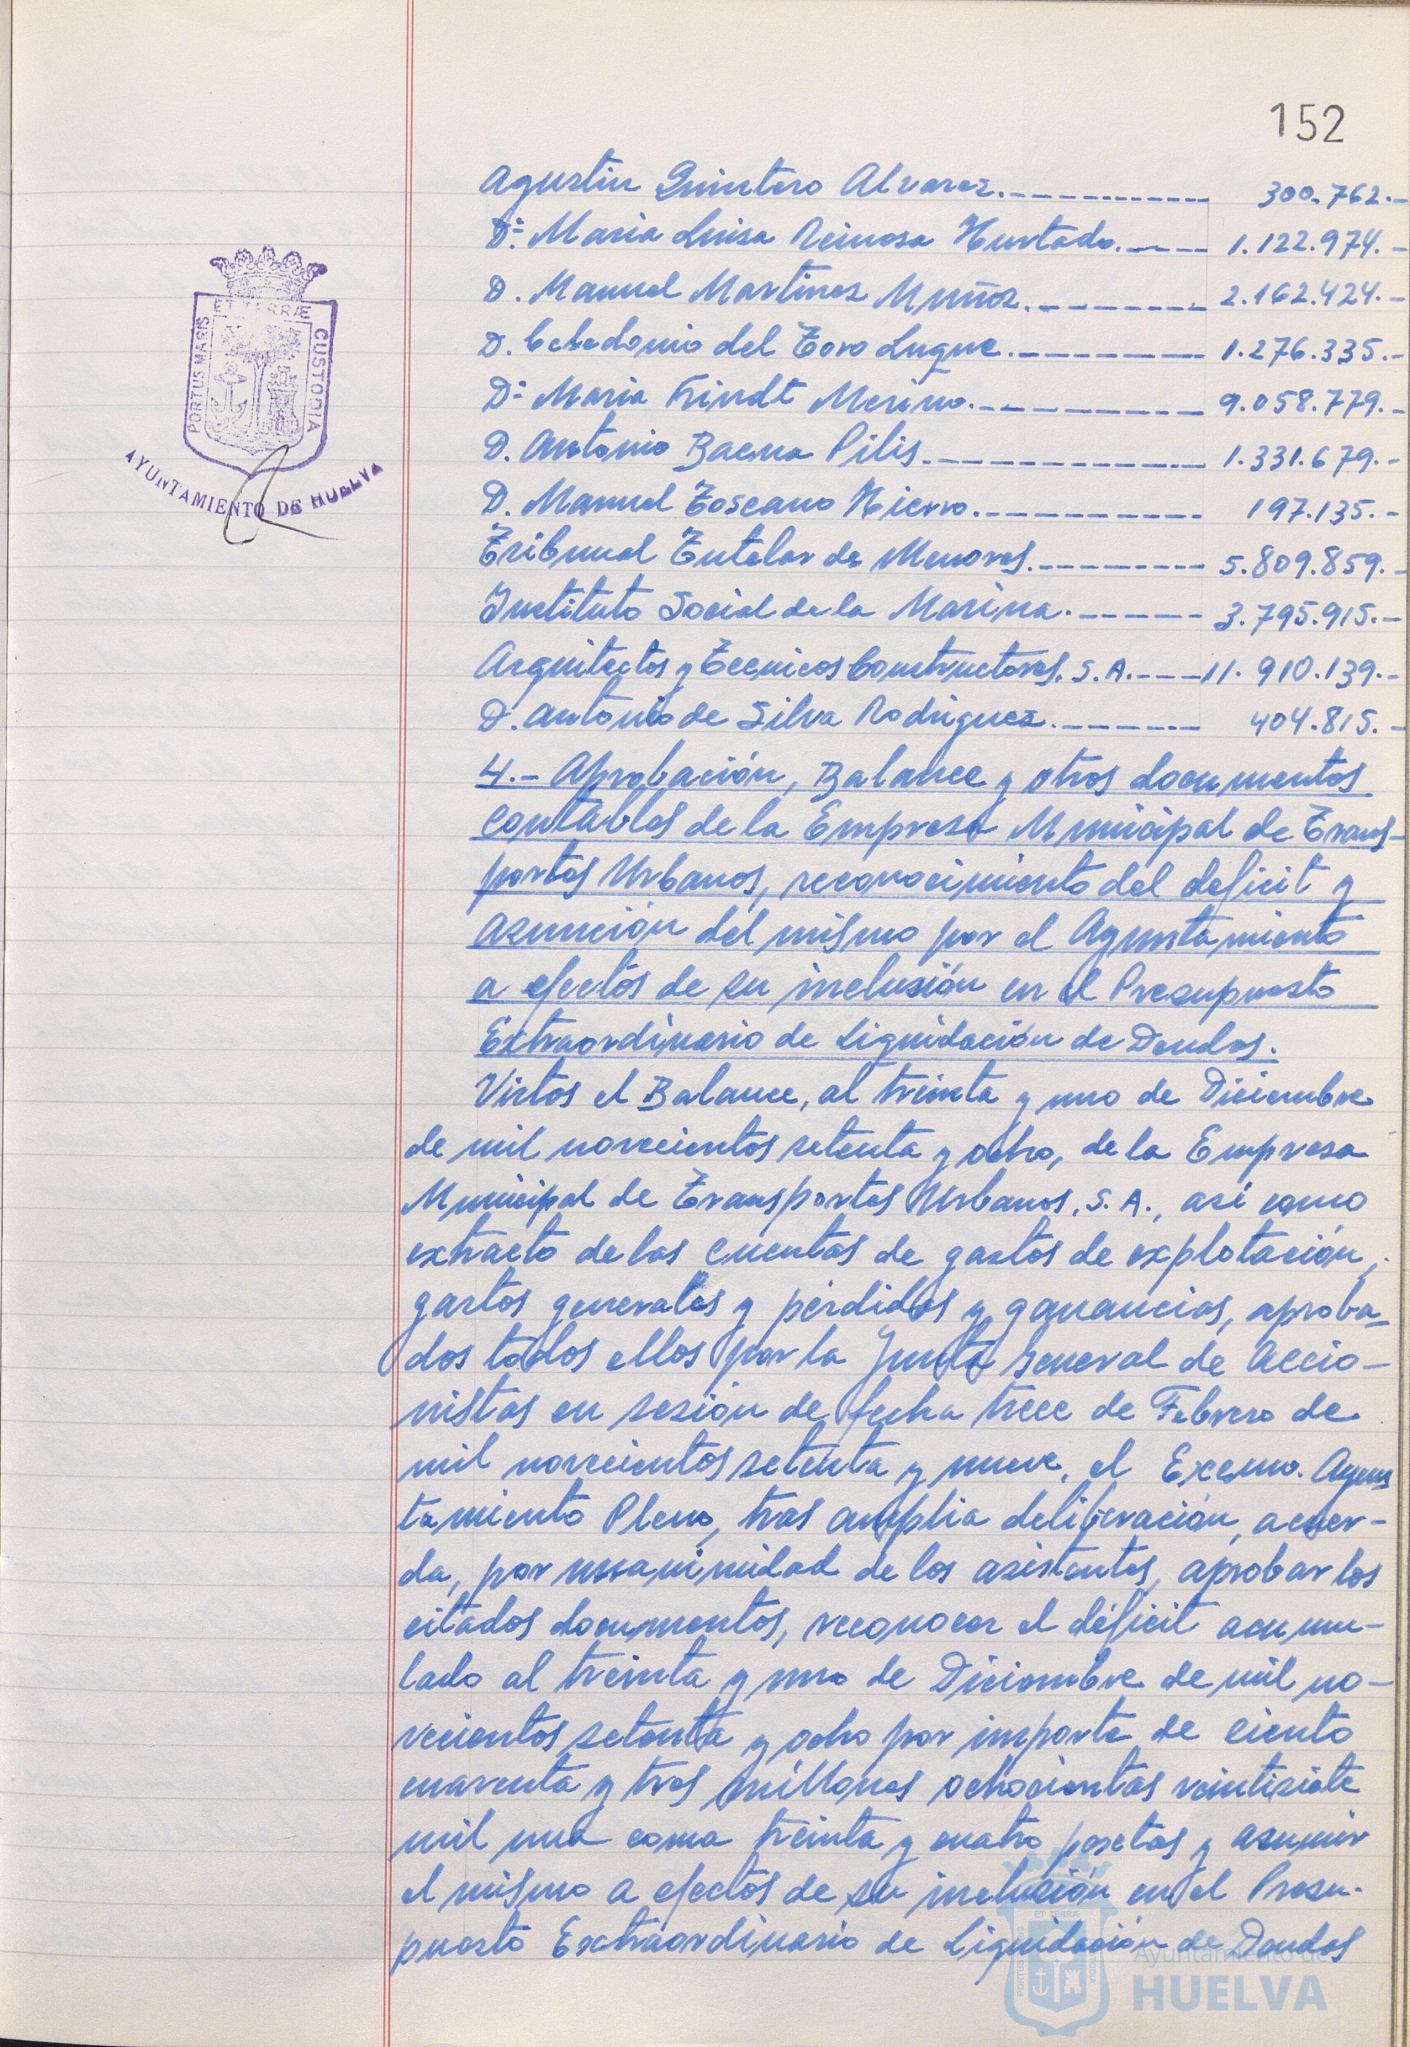 152
Agustin Quintero Alvarez.------------ 300.762.-
Dª Maria Luisa Reinosa Hurtado.---- 1.122.974.-
D. Manuel Martinez Muñoz.---------- 2.162.424.-
D. Celedonio del Toro Luque.--------- 1.276.335.-
Dª Maria Trindt Merino.------------ 9.058.779.-
D. Antonio Baena Pilis.------------- 1.331.679.-
D. Manuel Toscano Hierro.---------- 197.135.-
Tribunal Tutelar de Menores.-------- 5.809.859.-
Instituto Social de la Marina.------ 3.795.915.-
Arquitectos y Tecnicos Constructores, S.A.----11.910.139.-
D. Antonio de Silva Rodriguez.------- 404.815.-
4.- Aprobación, Balance y otros documentos
contables de la Empresa Municipal de Trans-
portes Urbanos, reconocimiento del deficit y
asunción del mismo por el Ayuntamiento
a efectos de su inclusión en el Presupuesto
Extraordinario de Liquidación de Deudas.
Vistos el Balance, al treinta y uno de Diciembre
de mil novecientos setenta y ocho, de la Empresa
Municipal de Transportes Urbanos, S.A., asi como
extracto de las cuentas de gastos de explotación,
gastos generales y pérdidas y ganancias, aproba-
dos todos ellos por la Junta General de Accio-
nistas en sesión de fecha trece de Febrero de
mil novecientos setenta y nueve, el Excmo. Ayun
tamiento Pleno, tras amplia deliberación, acuer-
da, por unanimidad de los asistentes, aprobar los
citados documentos, reconocer el déficit acumu-
lado al treinta y uno de Diciembre de mil no-
vecientos setenta y ocho por importe de ciento
cuarenta y tres millones ochocientas veintisiete
mil una coma treinta y cuatro pesetas y asumir
el mismo a efectos de su inclusión en el Presu-
puesto Extraordinario de Liquidación de Deudas
PORTUS MARIS ET TERRÆ CUSTODIA
AYUNTAMIENTO DE HUELVA
Ayuntamiento de
HUELVA